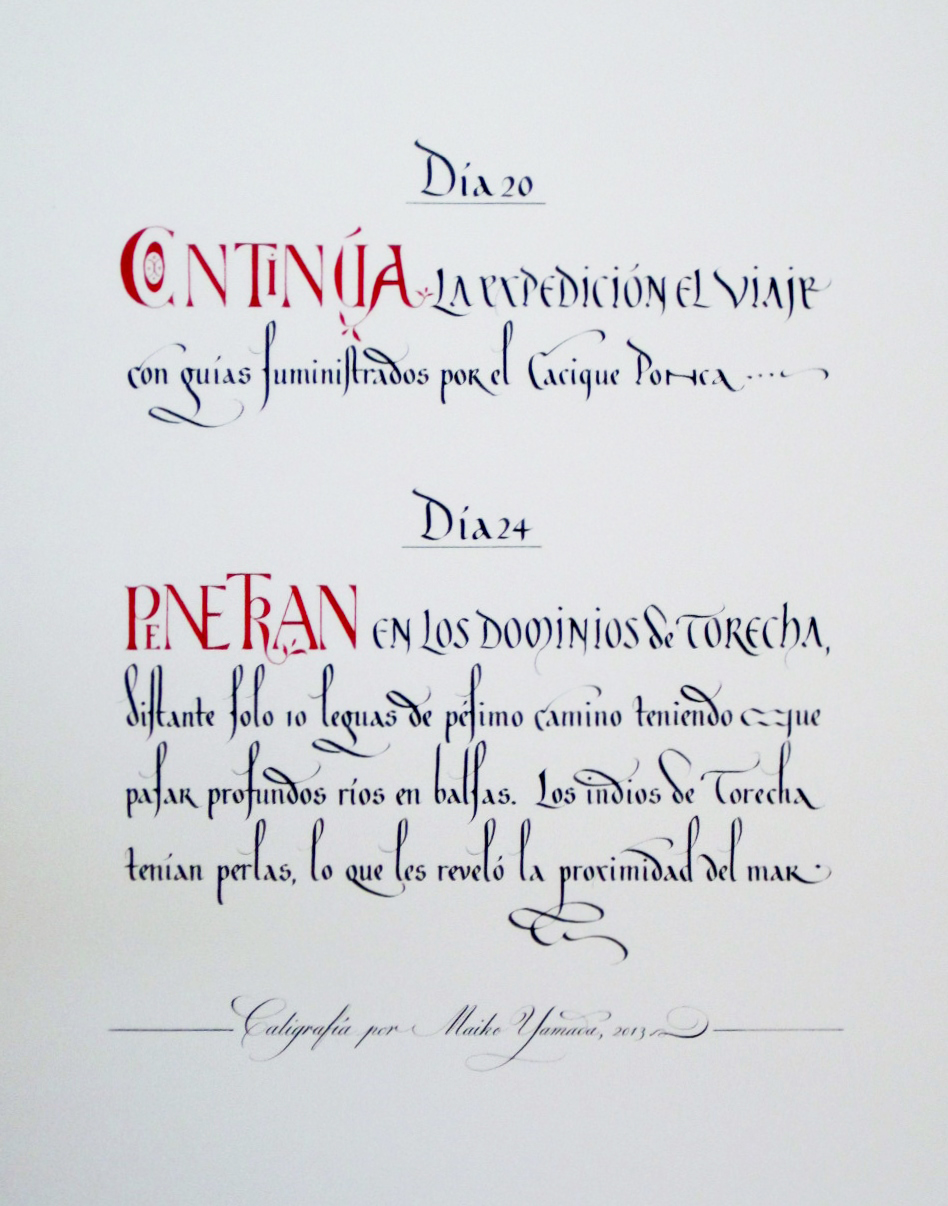 Día 20
CONTINÚA LA EXPEDICIÓN EL VIAJE
con guías ſuminiſtrados por el Cacique Ponca ....
Día 24
PENETRAN EN LOS DOMINIOS de TORECHA,
diſtante ſolo 10 leguas de péſimo camino teniendo que
paſar profundos ríos en balſas. Los indios de Torecha
tenían perlas, lo que les reveló la proximidad del mar.
Caligrafía por Maiko Yamada, 2013